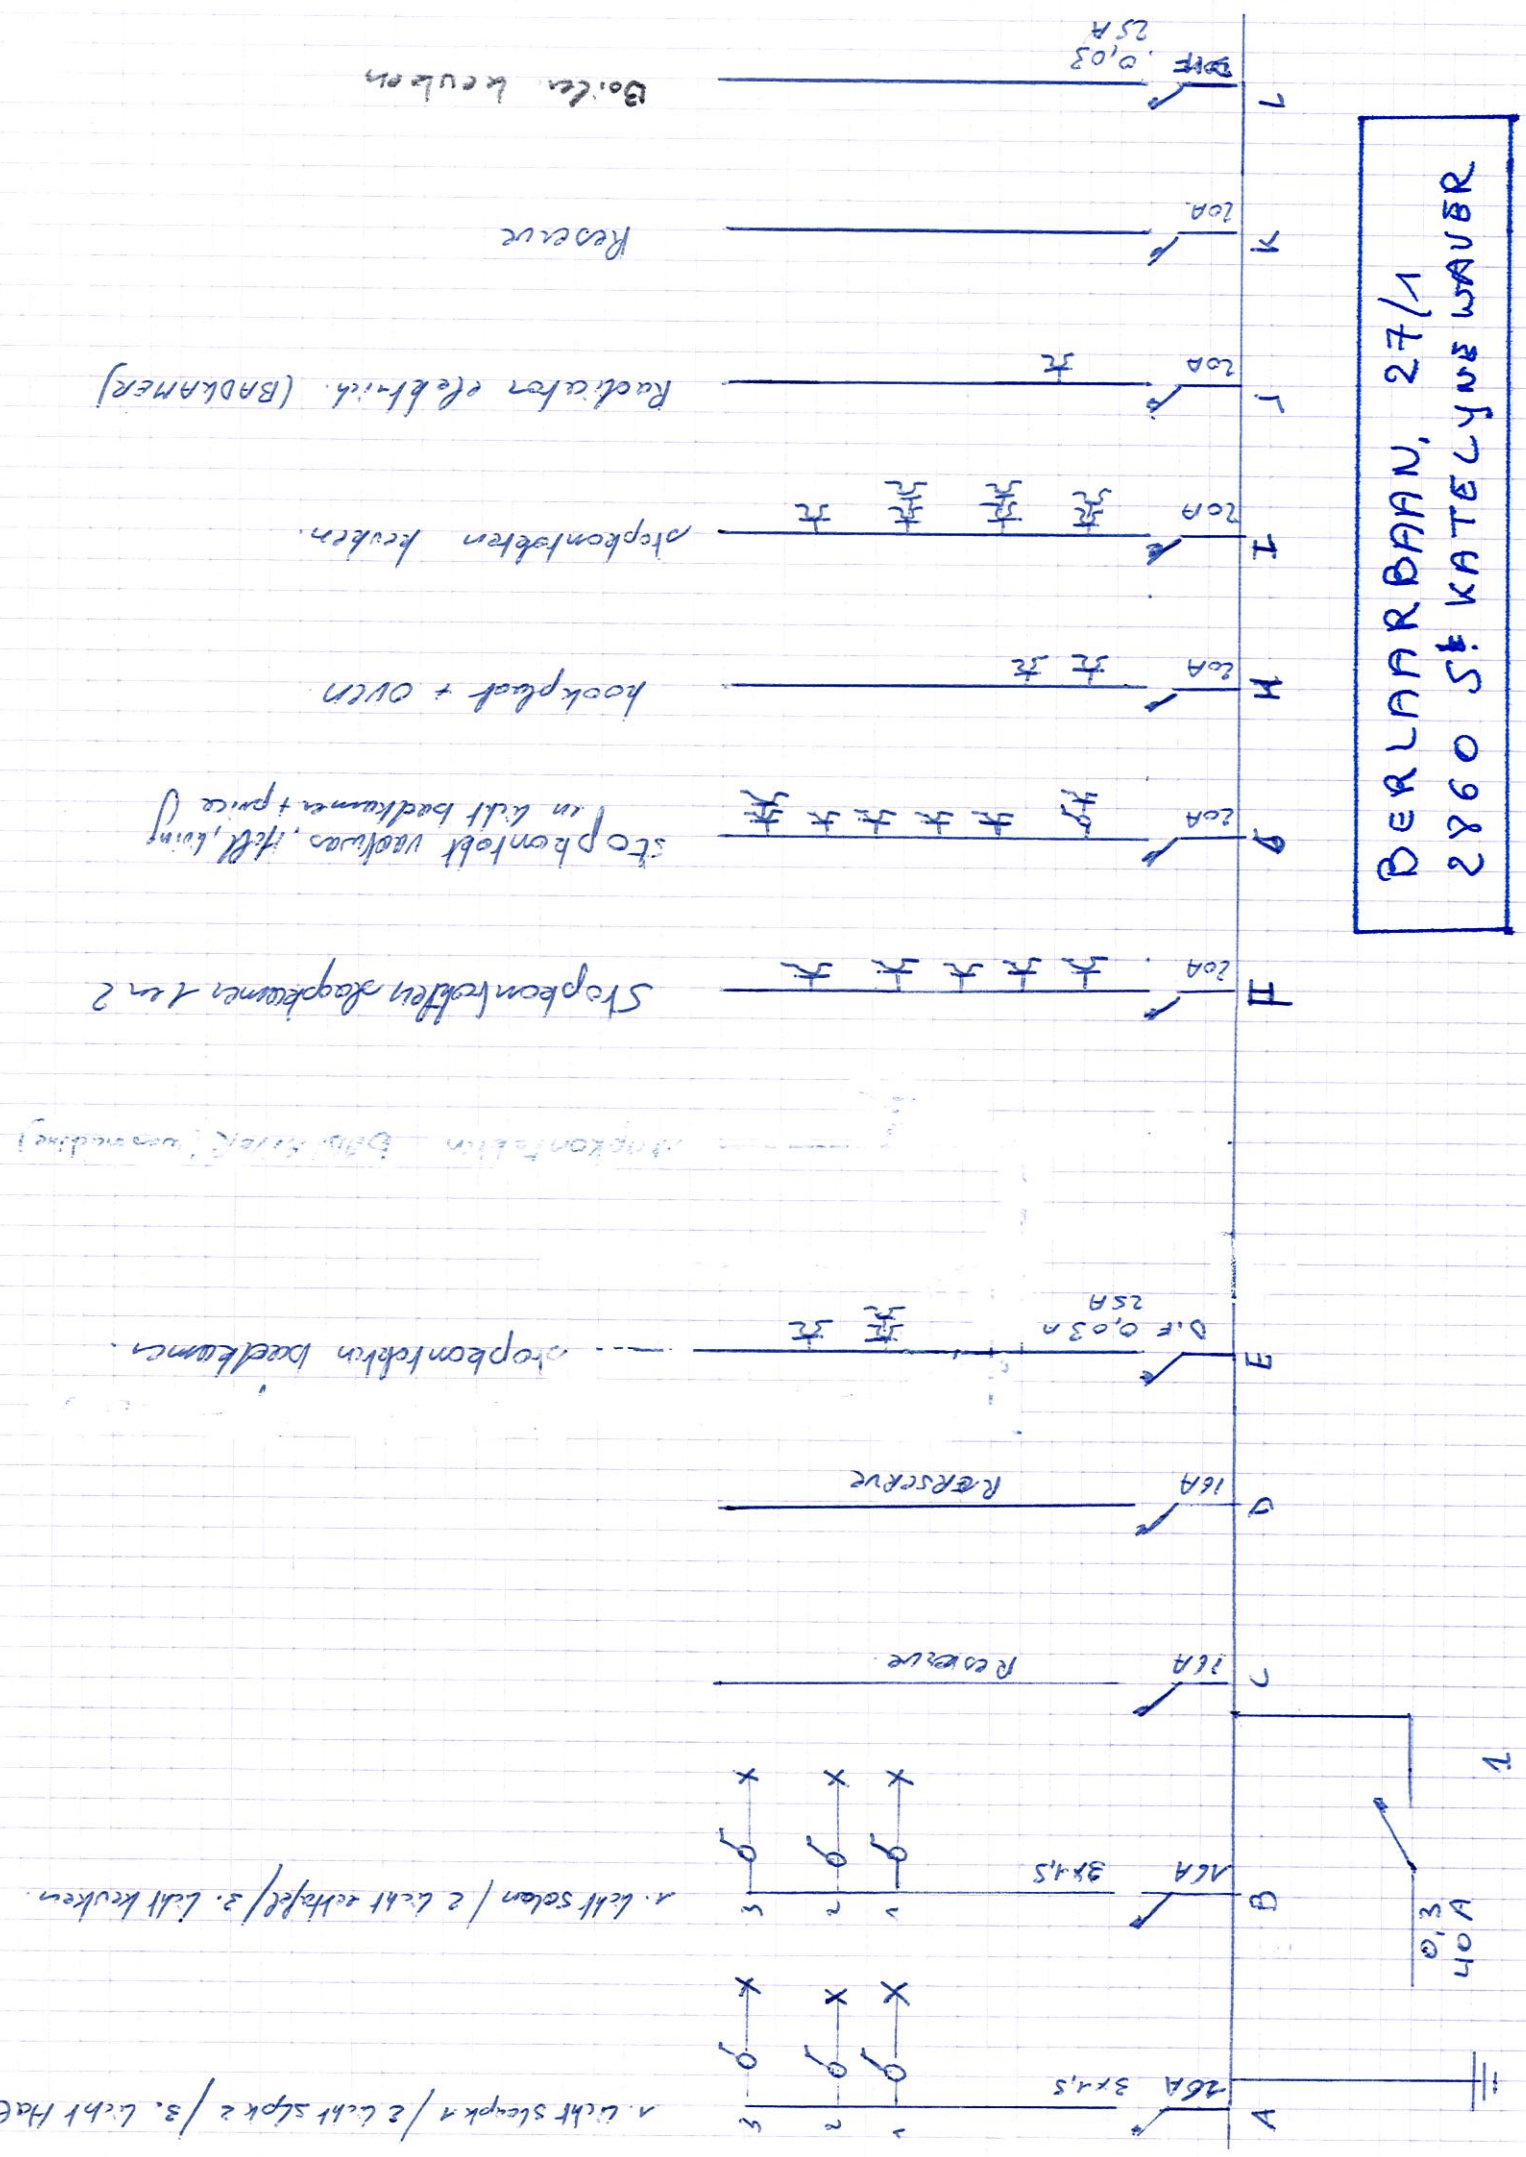 BERLAARBAAN, 27/1
2860 St KATELYNE WAVER
A
16A
3x1,5
1
2
3
1. licht slaapk 1 / 2 licht slpk 2 / 3. licht Hal
B
16A
3x1,5
1
2
3
1. licht salon / 2 licht eettafel / 3. licht keuken
0,3
40A
1
C
16A
Reserve
D
16A
RERSERVE
E
D.F 0,03 A
25A
stopkontakten badkamer.
stopkontakten
F
20A
Stopkontakten slaapkamer 1 en 2
G
20A
stopkontakt vaatwas, Hall, living
en licht badkamer + price
H
20A
kookplaat + oven
I
20A
stopkontakten keuken.
J
20A
Radiator elektrich. (BADKAMER)
K
20A.
Reserve
L
Diff. 0,03
25A
Boiler keuken